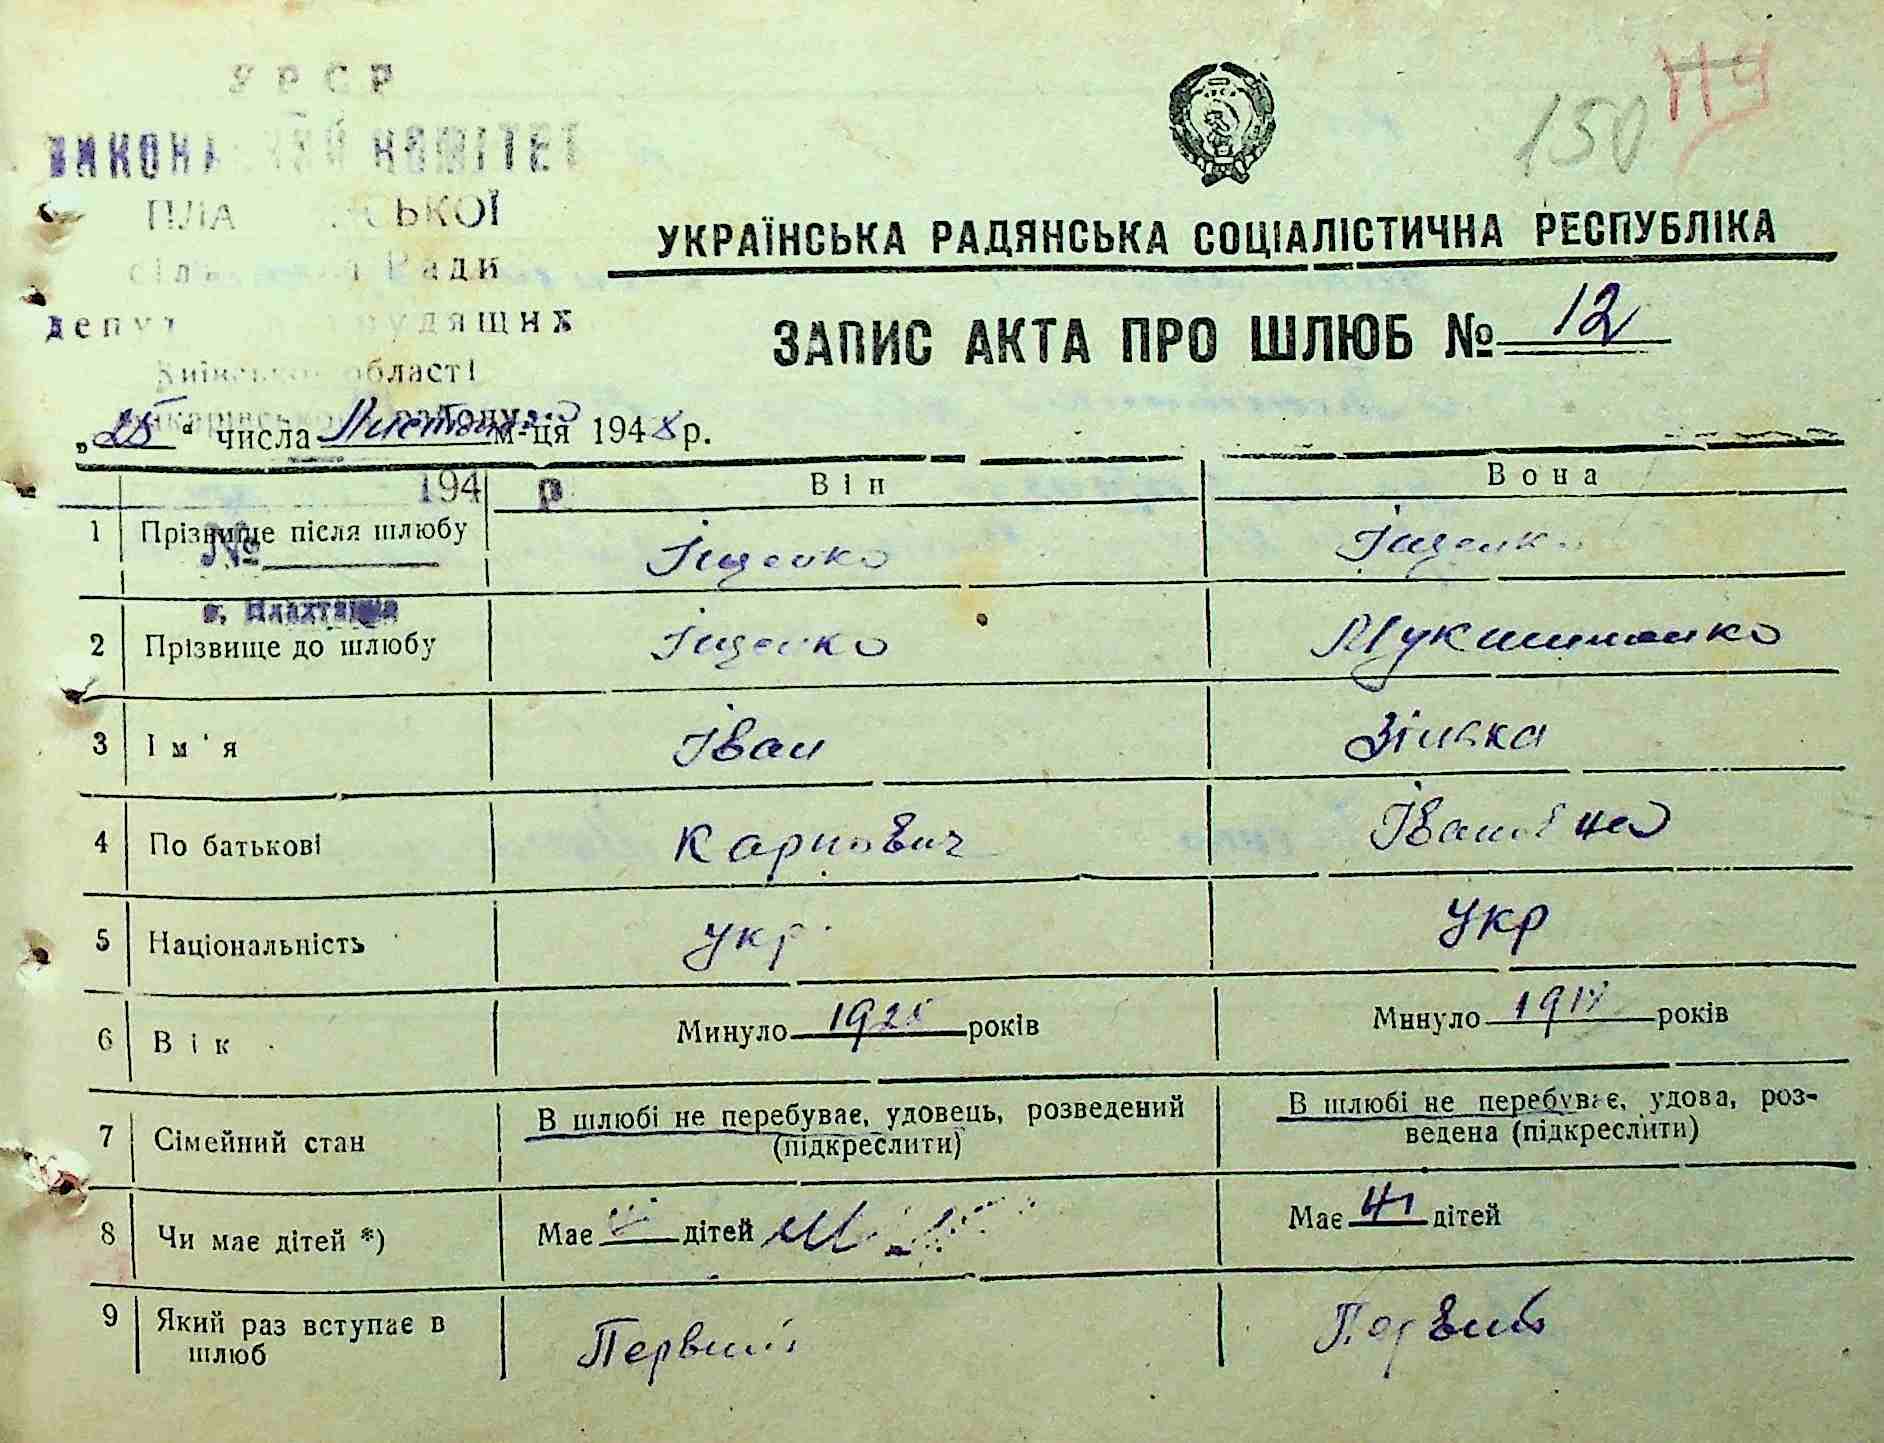 УРСР
ВИКОНАВЧИЙ КОМІТЕТ
150 119
УКРАЇНСЬКА РАДЯНСЬКА СОЦІАЛІСТИЧНА РЕСПУБЛІКА
Ради
ЗАПИС АКТА ПРО ШЛЮБ № 12
Київської області
району
„25“ числа Листопада м-ця 1948 р.
194 р
Він Вона
1 Прізвище після шлюбу Іщенко Іщенко
№
с. Плахтянка
2 Прізвище до шлюбу Іщенко
3 Ім'я Іван Зінька
4 По батькові Карпович Івановна
5 Національність укр укр
6 Вік Минуло років Минуло років
7 Сімейний стан В шлюбі не перебуває, удовець, розведений (підкреслити) В шлюбі не перебуває, удова, роз-
ведена (підкреслити)
8 Чи має дітей *) Має дітей Має дітей
9 Який раз вступає в шлюб Первий Первий